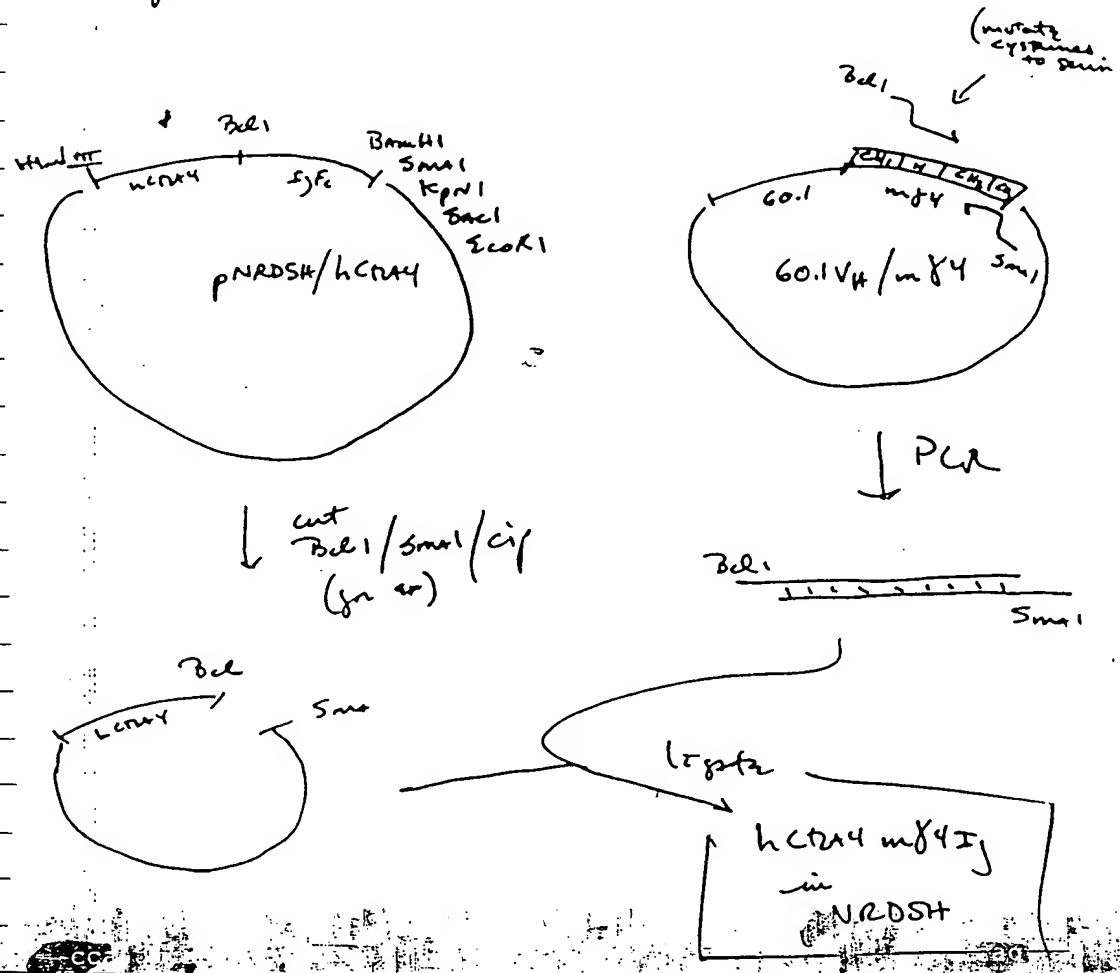 (mutate
cysteines
to serin
Bcl1
Bcl1
HindIII
hCTLA4
IgFc
BamH1
SMA1
KpN1
SAC1
EcoR1
pNRDSH/hCTLA4
CH1 H CH2 C3
60.1
mγ4
Sma1
60.1VH/mγ4
PCR
cut
Bcl1/Sma1/cip
Bcl1
Sma1
Bcl
hCTLA4
Sma
ligate
hCTLA4 mγ4Ig
in
NRDSH